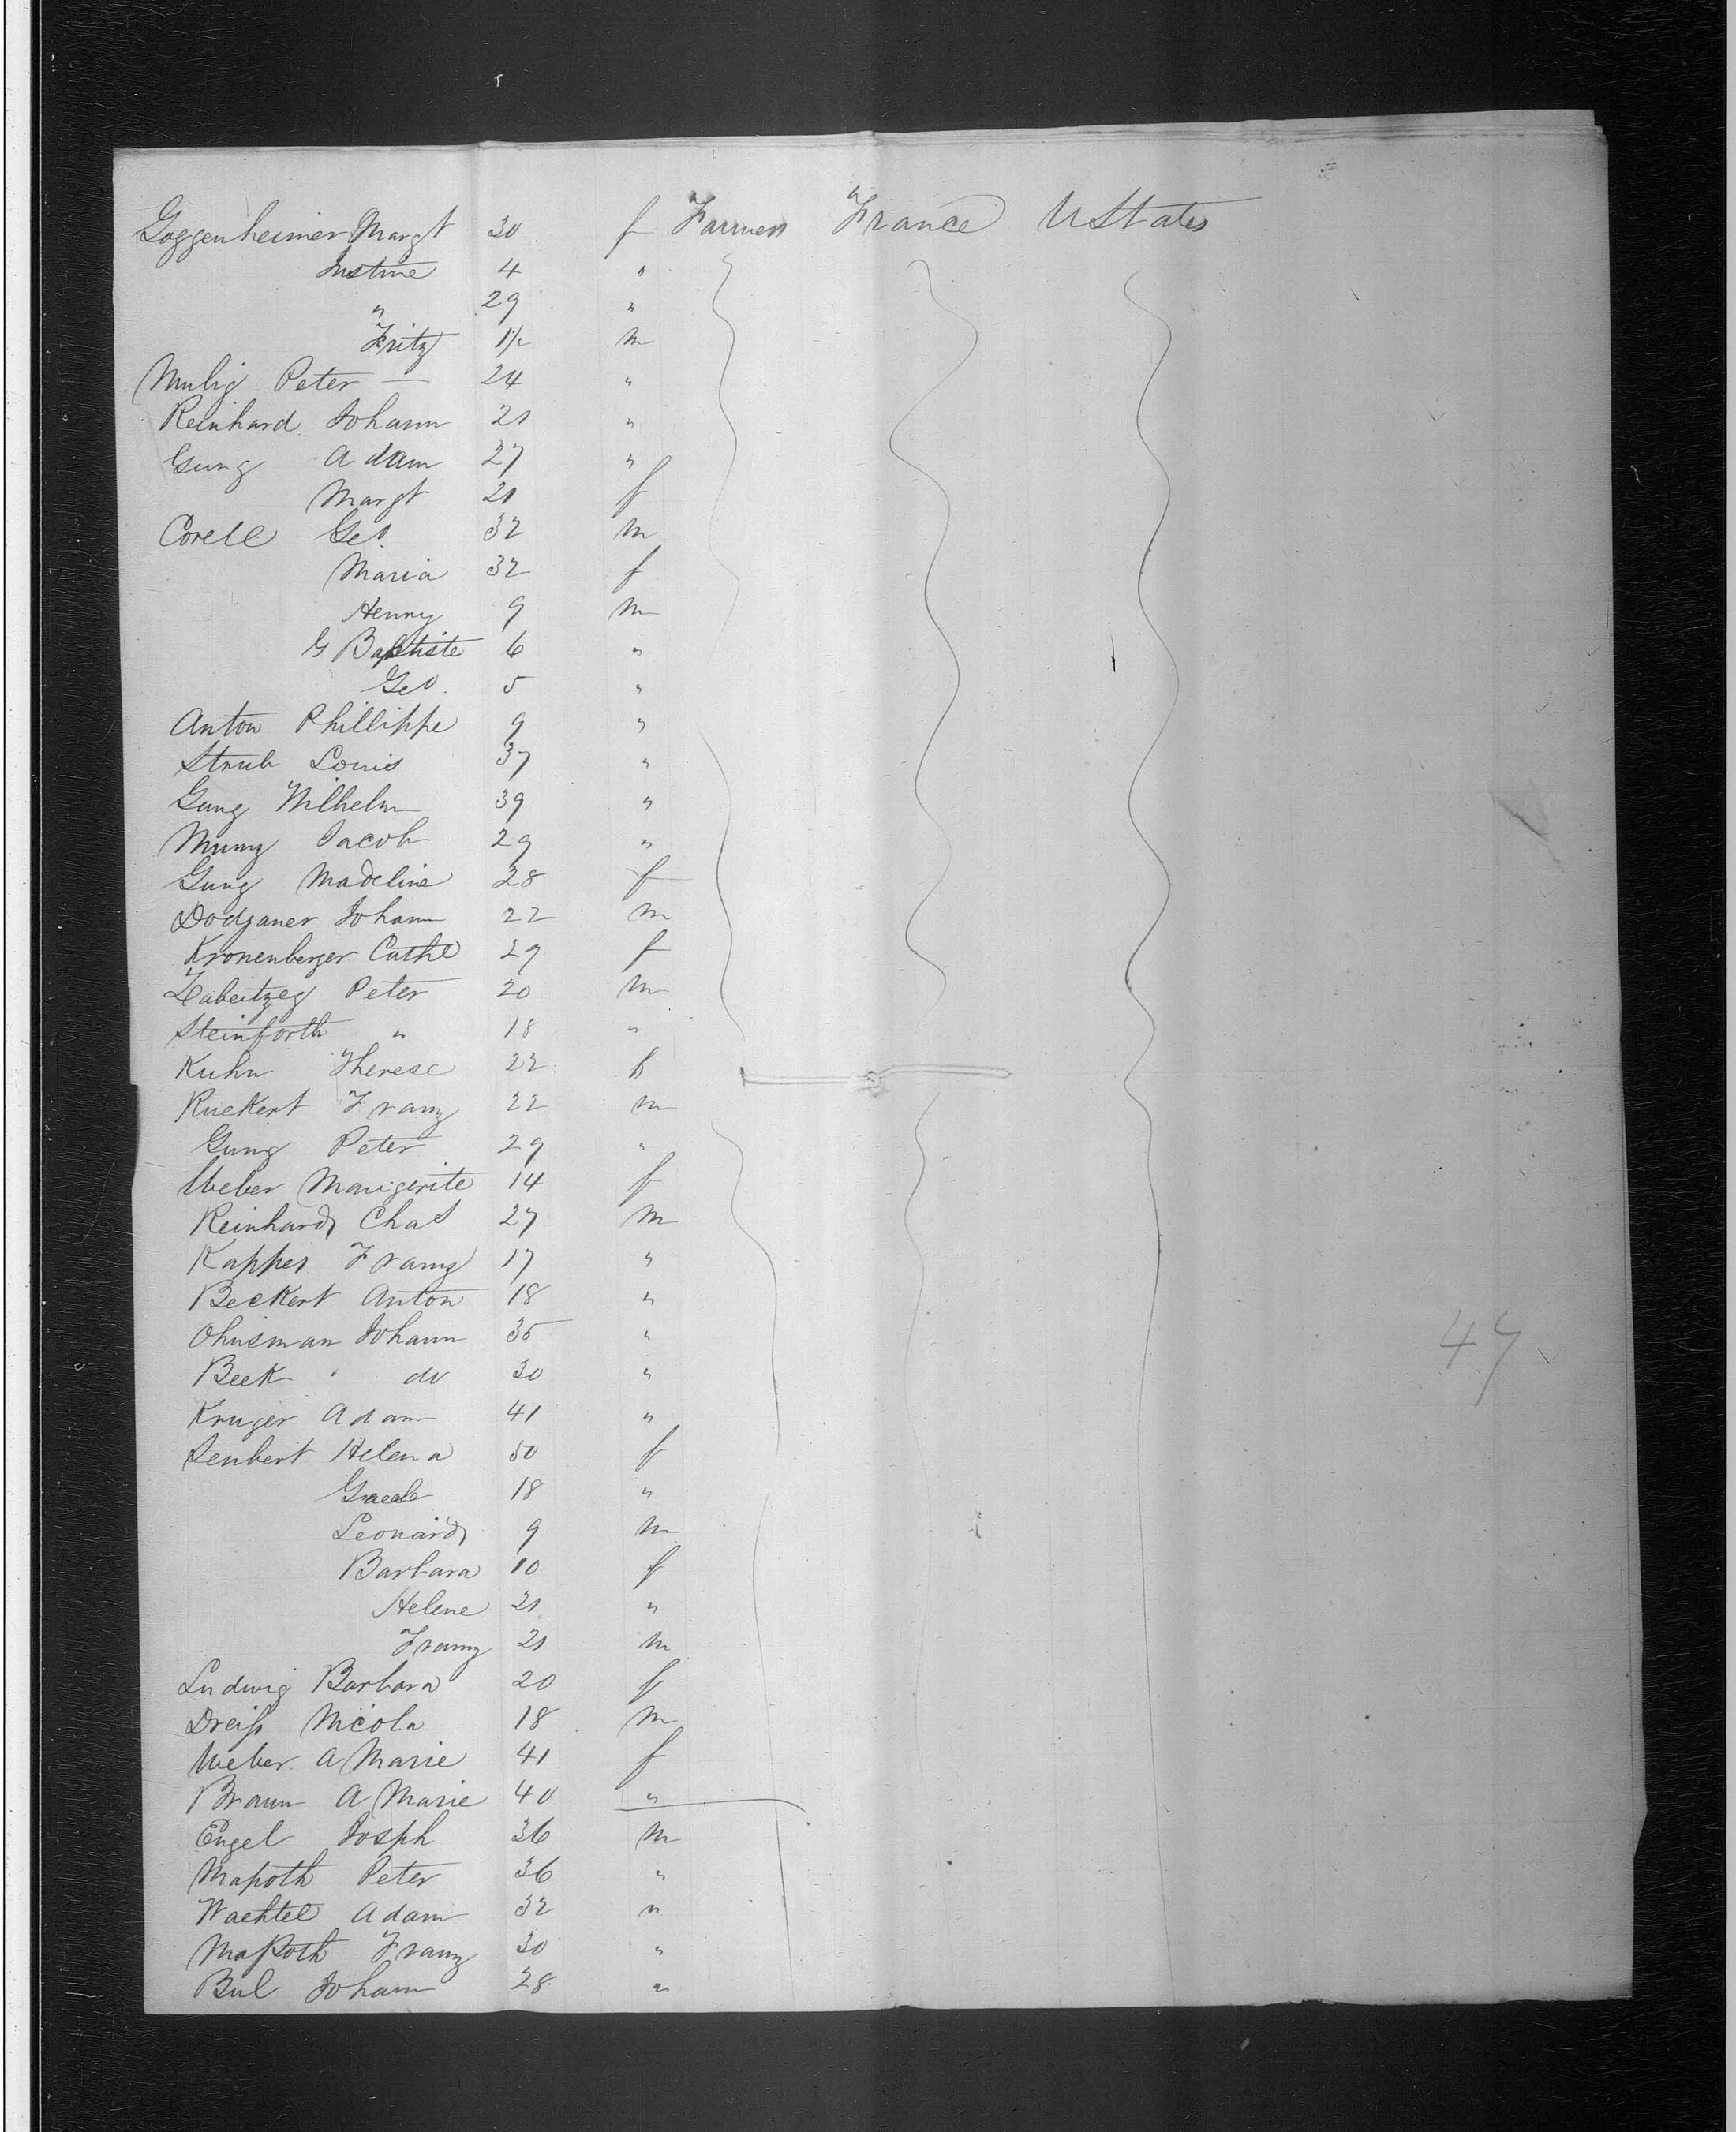 Goggenheimer Margt 30 f Farmers France UStates
Justine 4 "
" 29 "
Fritz 1½ m
Mulig Peter — 24 "
Reinhard Johann 21 "
Gung Adam 27 "
Margt 21 f
Corell Geo. 32 m
Maria 32 f
Henry 9 m
G Baptiste 6 "
Geo. 5 "
Anton Phillippe 9 "
Strub Louis 37 "
Gung Wilhelm 39 "
Munz Jacob 29 "
Gung Madeline 28 f
Dodganer Johann 22 m
Kronenberger Cathe 29 f
Peter 20 m
Steinforth " 18 "
Kuhn Therese 22 f
Ruckert Franz 22 m
Gung Peter 29 "
Weber Margerite 14 f
Reinhard Chas 27 m
Kappes Franz 17 "
Beckert Anton 18 "
Ohnsman Johann 35 "
Beck do 30 "
Kruger Adam 41 "
Senbert Helena 50 f
18 "
Leonard 9 m
Barbara 10 f
Helene 21 "
Franz 21 m
Ludwig Barbara 20 f
Dreiß Nicola 18 m
Weber A Marie 41 f
Braun A Marie 40 "
Engel Josph 36 m
Maßoth Peter 36 "
Wachtel Adam 32 "
Maßoth Franz 30 "
Bul Johann 28 "
47